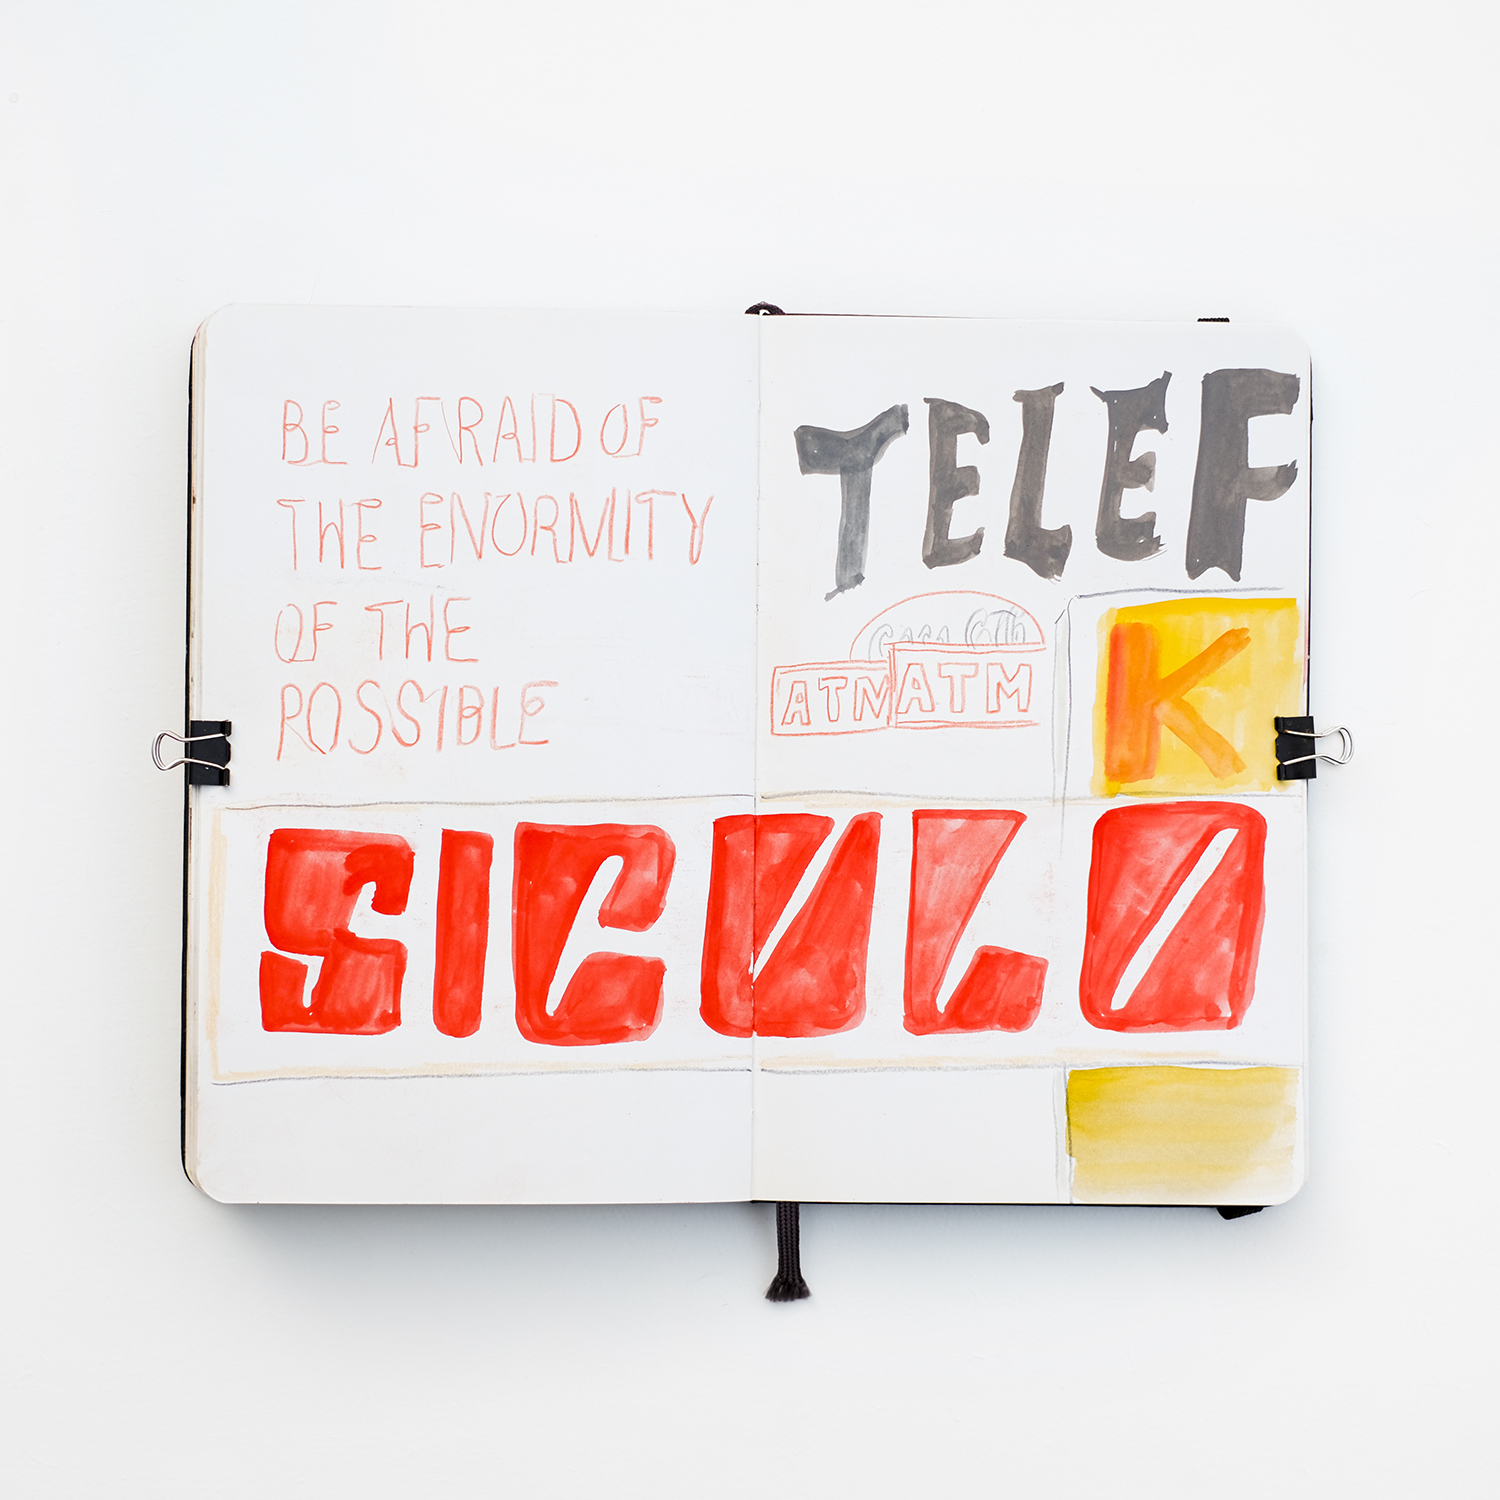 BE AFRAID OF
THE ENORMITY
OF THE
POSSIBLE
TELEF
ATM ATM
K
SICULO